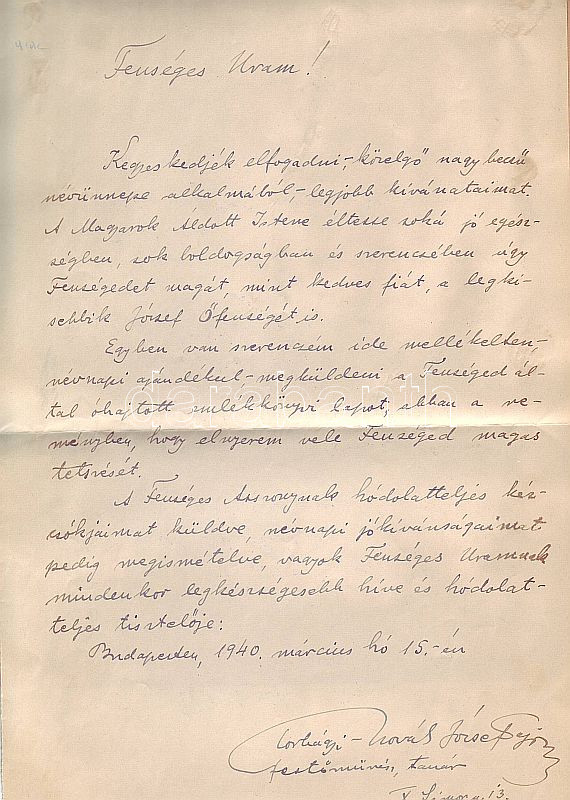 Fenséges Uram!
Kegyeskedjék elfogadni,-közelgő nagy becsű
névünnepe alkalmából,-legjobb kívánataimat.
A Magyarok Áldott Istene éltesse soká jó egész-
ségben, sok boldogságban és szerencsében úgy
Fenségedet magát, mint kedves fiát, a legki-
sebbik József Őfenségét is.
Egyben van szerencsém ide mellékelten,-
névnapi ajándékul-megküldeni a Fenséged ál-
tal óhajtott emlékkönyvi lapot, abban a re-
ményben, hogy elnyerem vele Fenséged magas
tetszését.
A Fenséges Asszonynak hódolatteljes kéz-
csókjaimat küldve, névnapi jókívánságaimat
pedig megismételve, vagyok Fenséges Uramnak
mindenkor legkészségesebb híve és hódolat-
teljes tisztelője:
Budapesten, 1940. március hó 15.-én
Torbágyi-Novák József Lajos
festőművész, tanár